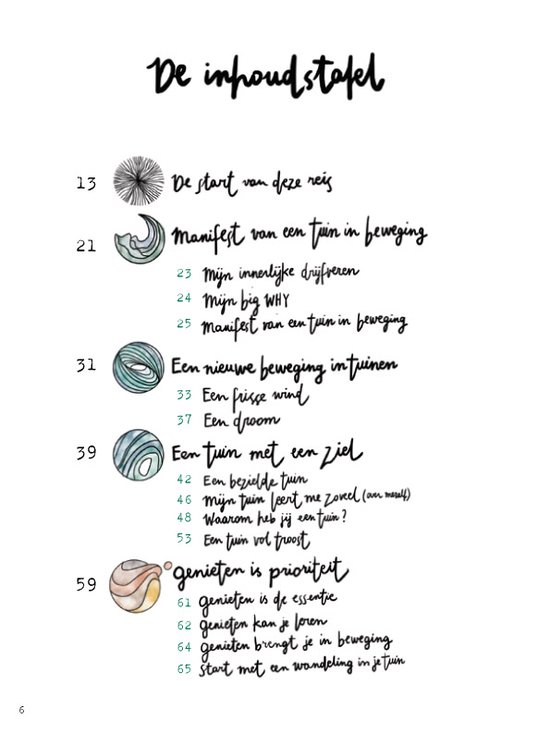 De inhoudstafel
13 De start van deze reis
21 Manifest van een tuin in beweging
23 Mijn innerlijke drijfveren
24 Mijn big WHY
25 Manifest van een tuin in beweging
31 Een nieuwe beweging in tuinen
33 Een frisse wind
37 Een droom
39 Een tuin met een ziel
42 Een bezielde tuin
46 Mijn tuin leert me zoveel (over mezelf)
48 Waarom heb jij een tuin?
53 Een tuin vol troost
59 genieten is prioriteit
61 genieten is de essentie
62 genieten kan je leren
64 genieten brengt je in beweging
65 start met een wandeling in je tuin
6